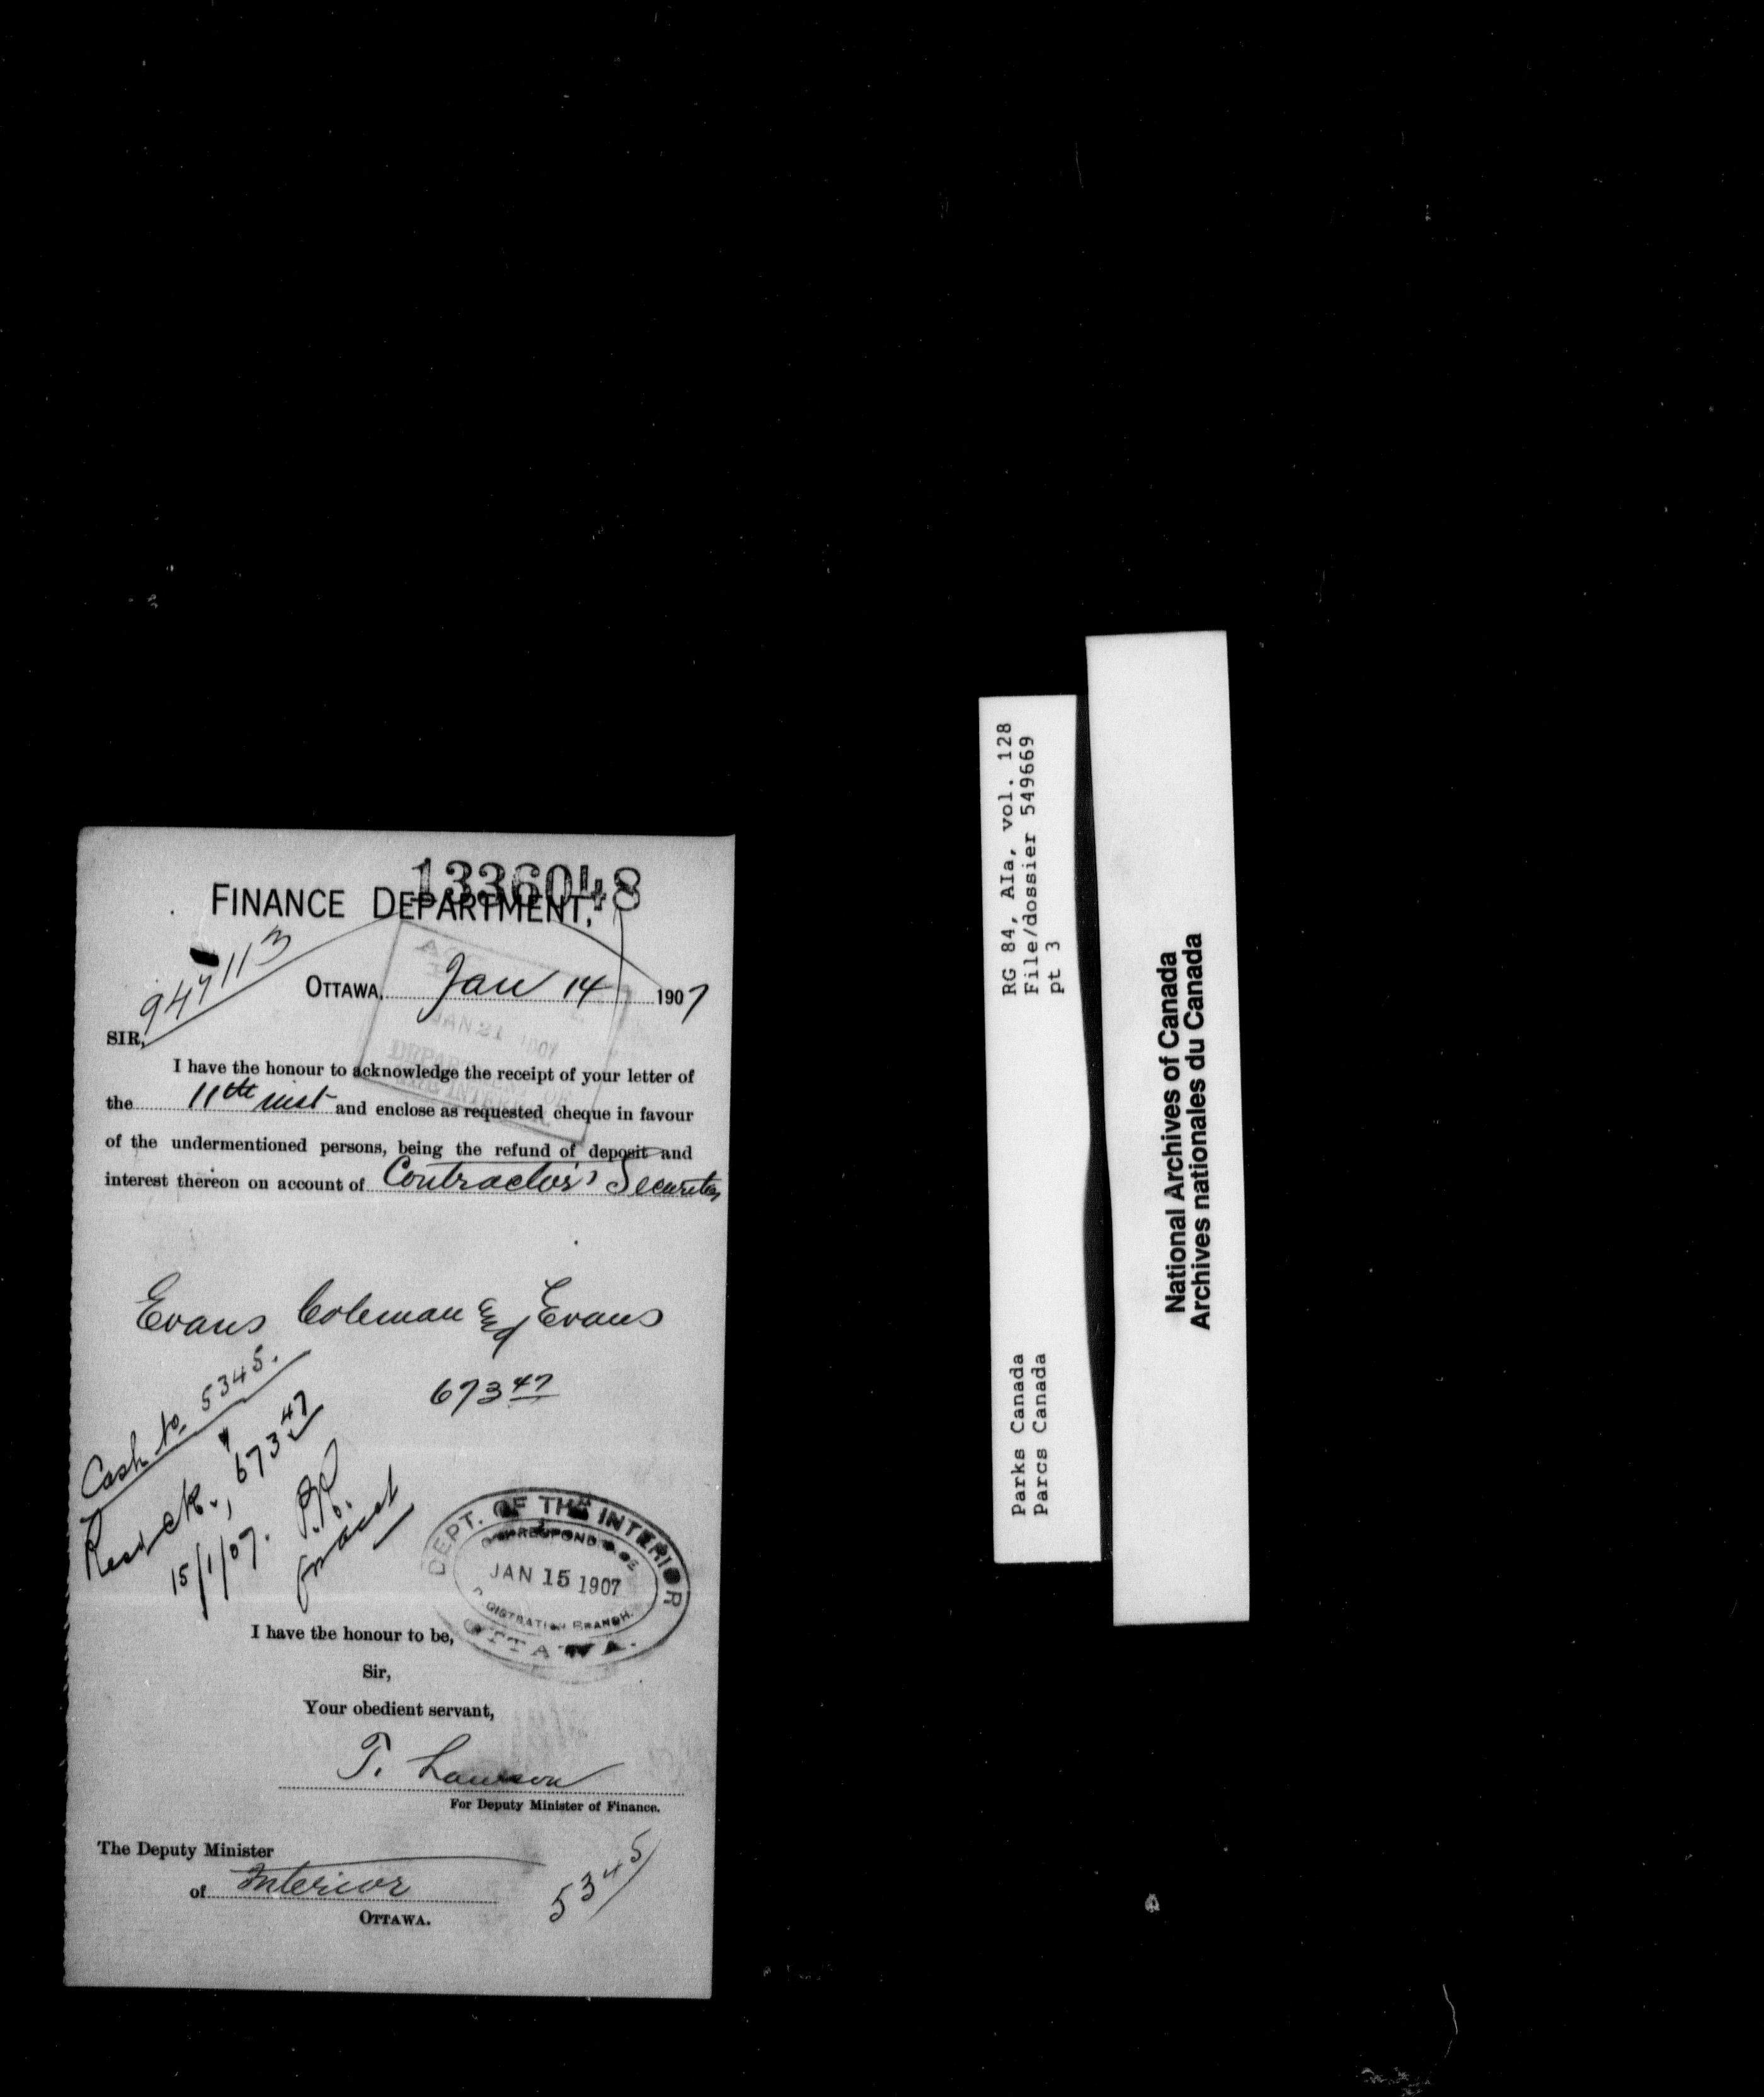 1336048
FINANCE DEPARTMENT,
947113
OTTAWA, Jan 14 1907
JAN 21 1907
DEPARTMENT OF
THE INTERIOR
SIR,
I have the honour to acknowledge the receipt of your letter of
the 11th inst and enclose as requested cheque in favour
of the undermentioned persons, being the refund of deposit and
interest thereon on account of Contractors' Securities
Evans Coleman & Evans
673 47
Cash to 5345.
673 47
15/1/07.
DEPT. OF THE INTERIOR
CORRESPONDENCE
JAN 15 1907
REGISTRATION BRANCH.
OTTAWA.
I have the honour to be,
Sir,
Your obedient servant,
T. Lawson
For Deputy Minister of Finance.
The Deputy Minister
of Interior
OTTAWA.
5345
RG 84, AIa, vol. 128
File/dossier 549669
pt 3
Parks Canada
Parcs Canada
National Archives of Canada
Archives nationales du Canada